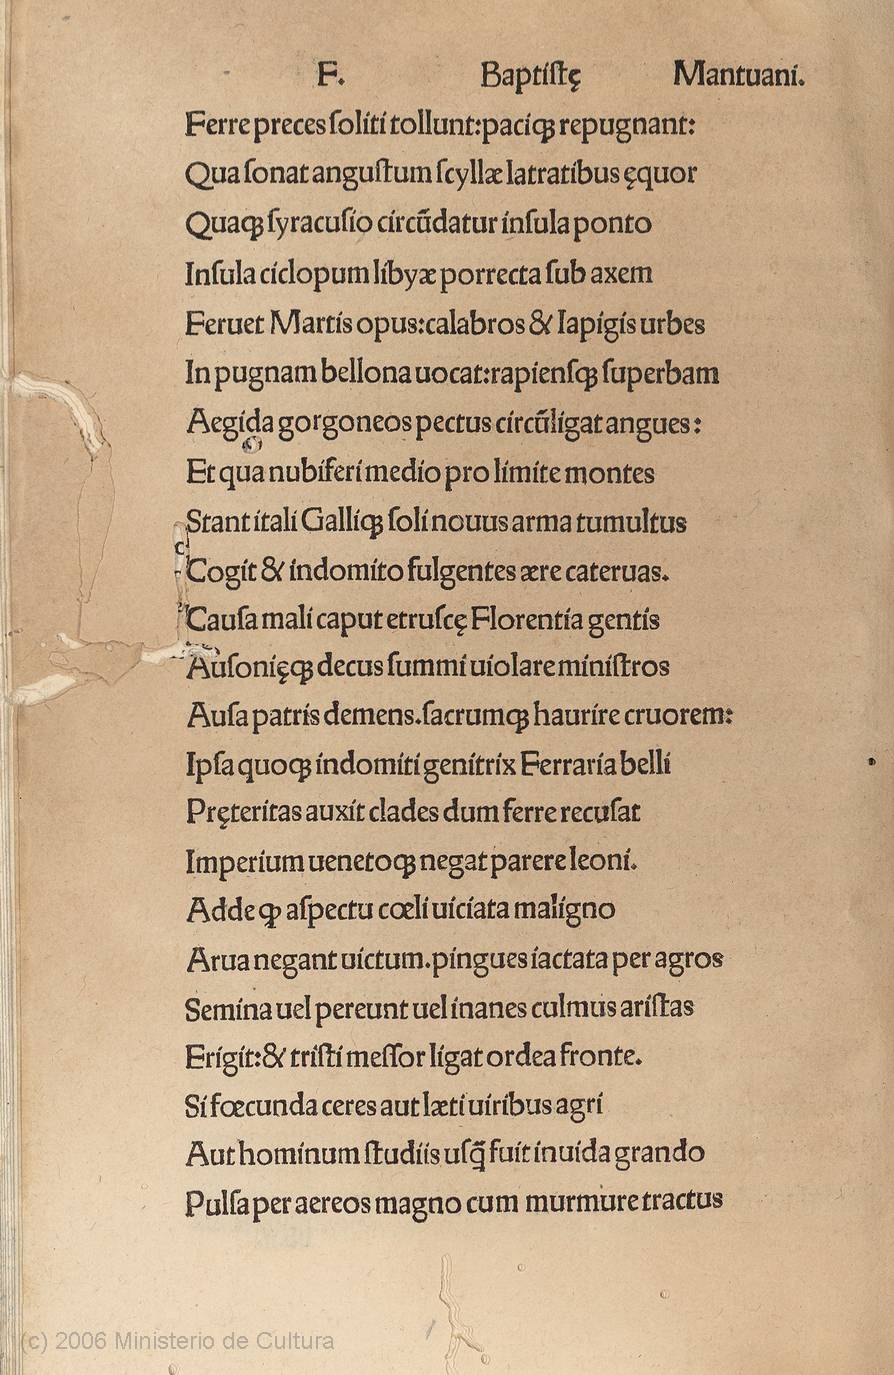 F. Baptiſtę Mantuani.
Ferre preces ſoliti tollunt:paciꝙ repugnant:
Qua ſonat anguſtum ſcyllæ latratibus ęquor
Quaꝙ ſyracuſio circũdatur inſula ponto
Inſula ciclopum libyæ porrecta ſub axem
Feruet Martis opus:calabros & Iapigis urbes
In pugnam bellona uocat:rapienſꝙ ſuperbam
Aegida gorgoneos pectus circũligat angues:
Et qua nubiferi medio pro limite montes
Stant itali Galliꝙ ſoli nouus arma tumultus
Cogit & indomito fulgentes ære cateruas.
Cauſa mali caput etruſcę Florentia gentis
Auſonięꝙ decus ſummi uiolare miniſtros
Auſa patris demens.ſacrumꝙ haurire cruorem:
Ipſa quoꝙ indomiti genitrix Ferraria belli
Pręteritas auxit clades dum ferre recuſat
Imperium uenetoꝙ negat parere leoni.
Adde ꝙ aſpectu cœli uiciata maligno
Arua negant uictum.pingues iactata per agros
Semina uel pereunt uel inanes culmus ariſtas
Erigit:& triſti meſſor ligat ordea fronte.
Si fœcunda ceres aut læti uiribus agri
Aut hominum ſtudiis uſq̃ fuit inuida grando
Pulſa per aereos magno cum murmure tractus
(c) 2006 Ministerio de Cultura